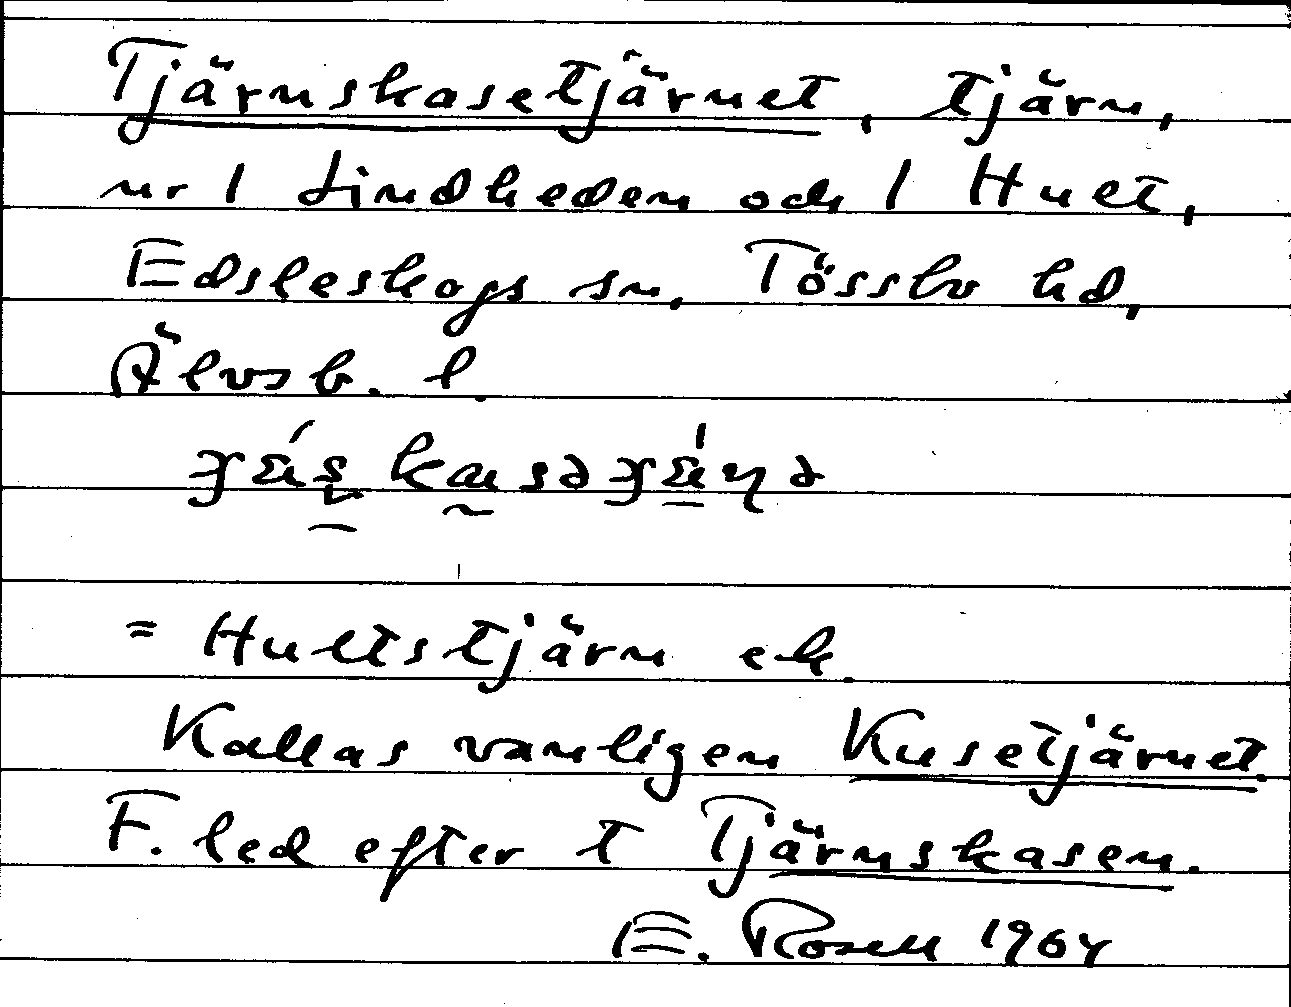 Tjärnskasetjärnet, tjärn,
nr 1 Lindheden och 1 Huet,
Edsleskogs sn, Tössbo hd,
Älvsb. l.
= Hultstjärn ek.
Kallas vanligen Kusetjärnet.
F. led efter t Tjärnskasen.
E. Rosell 1964